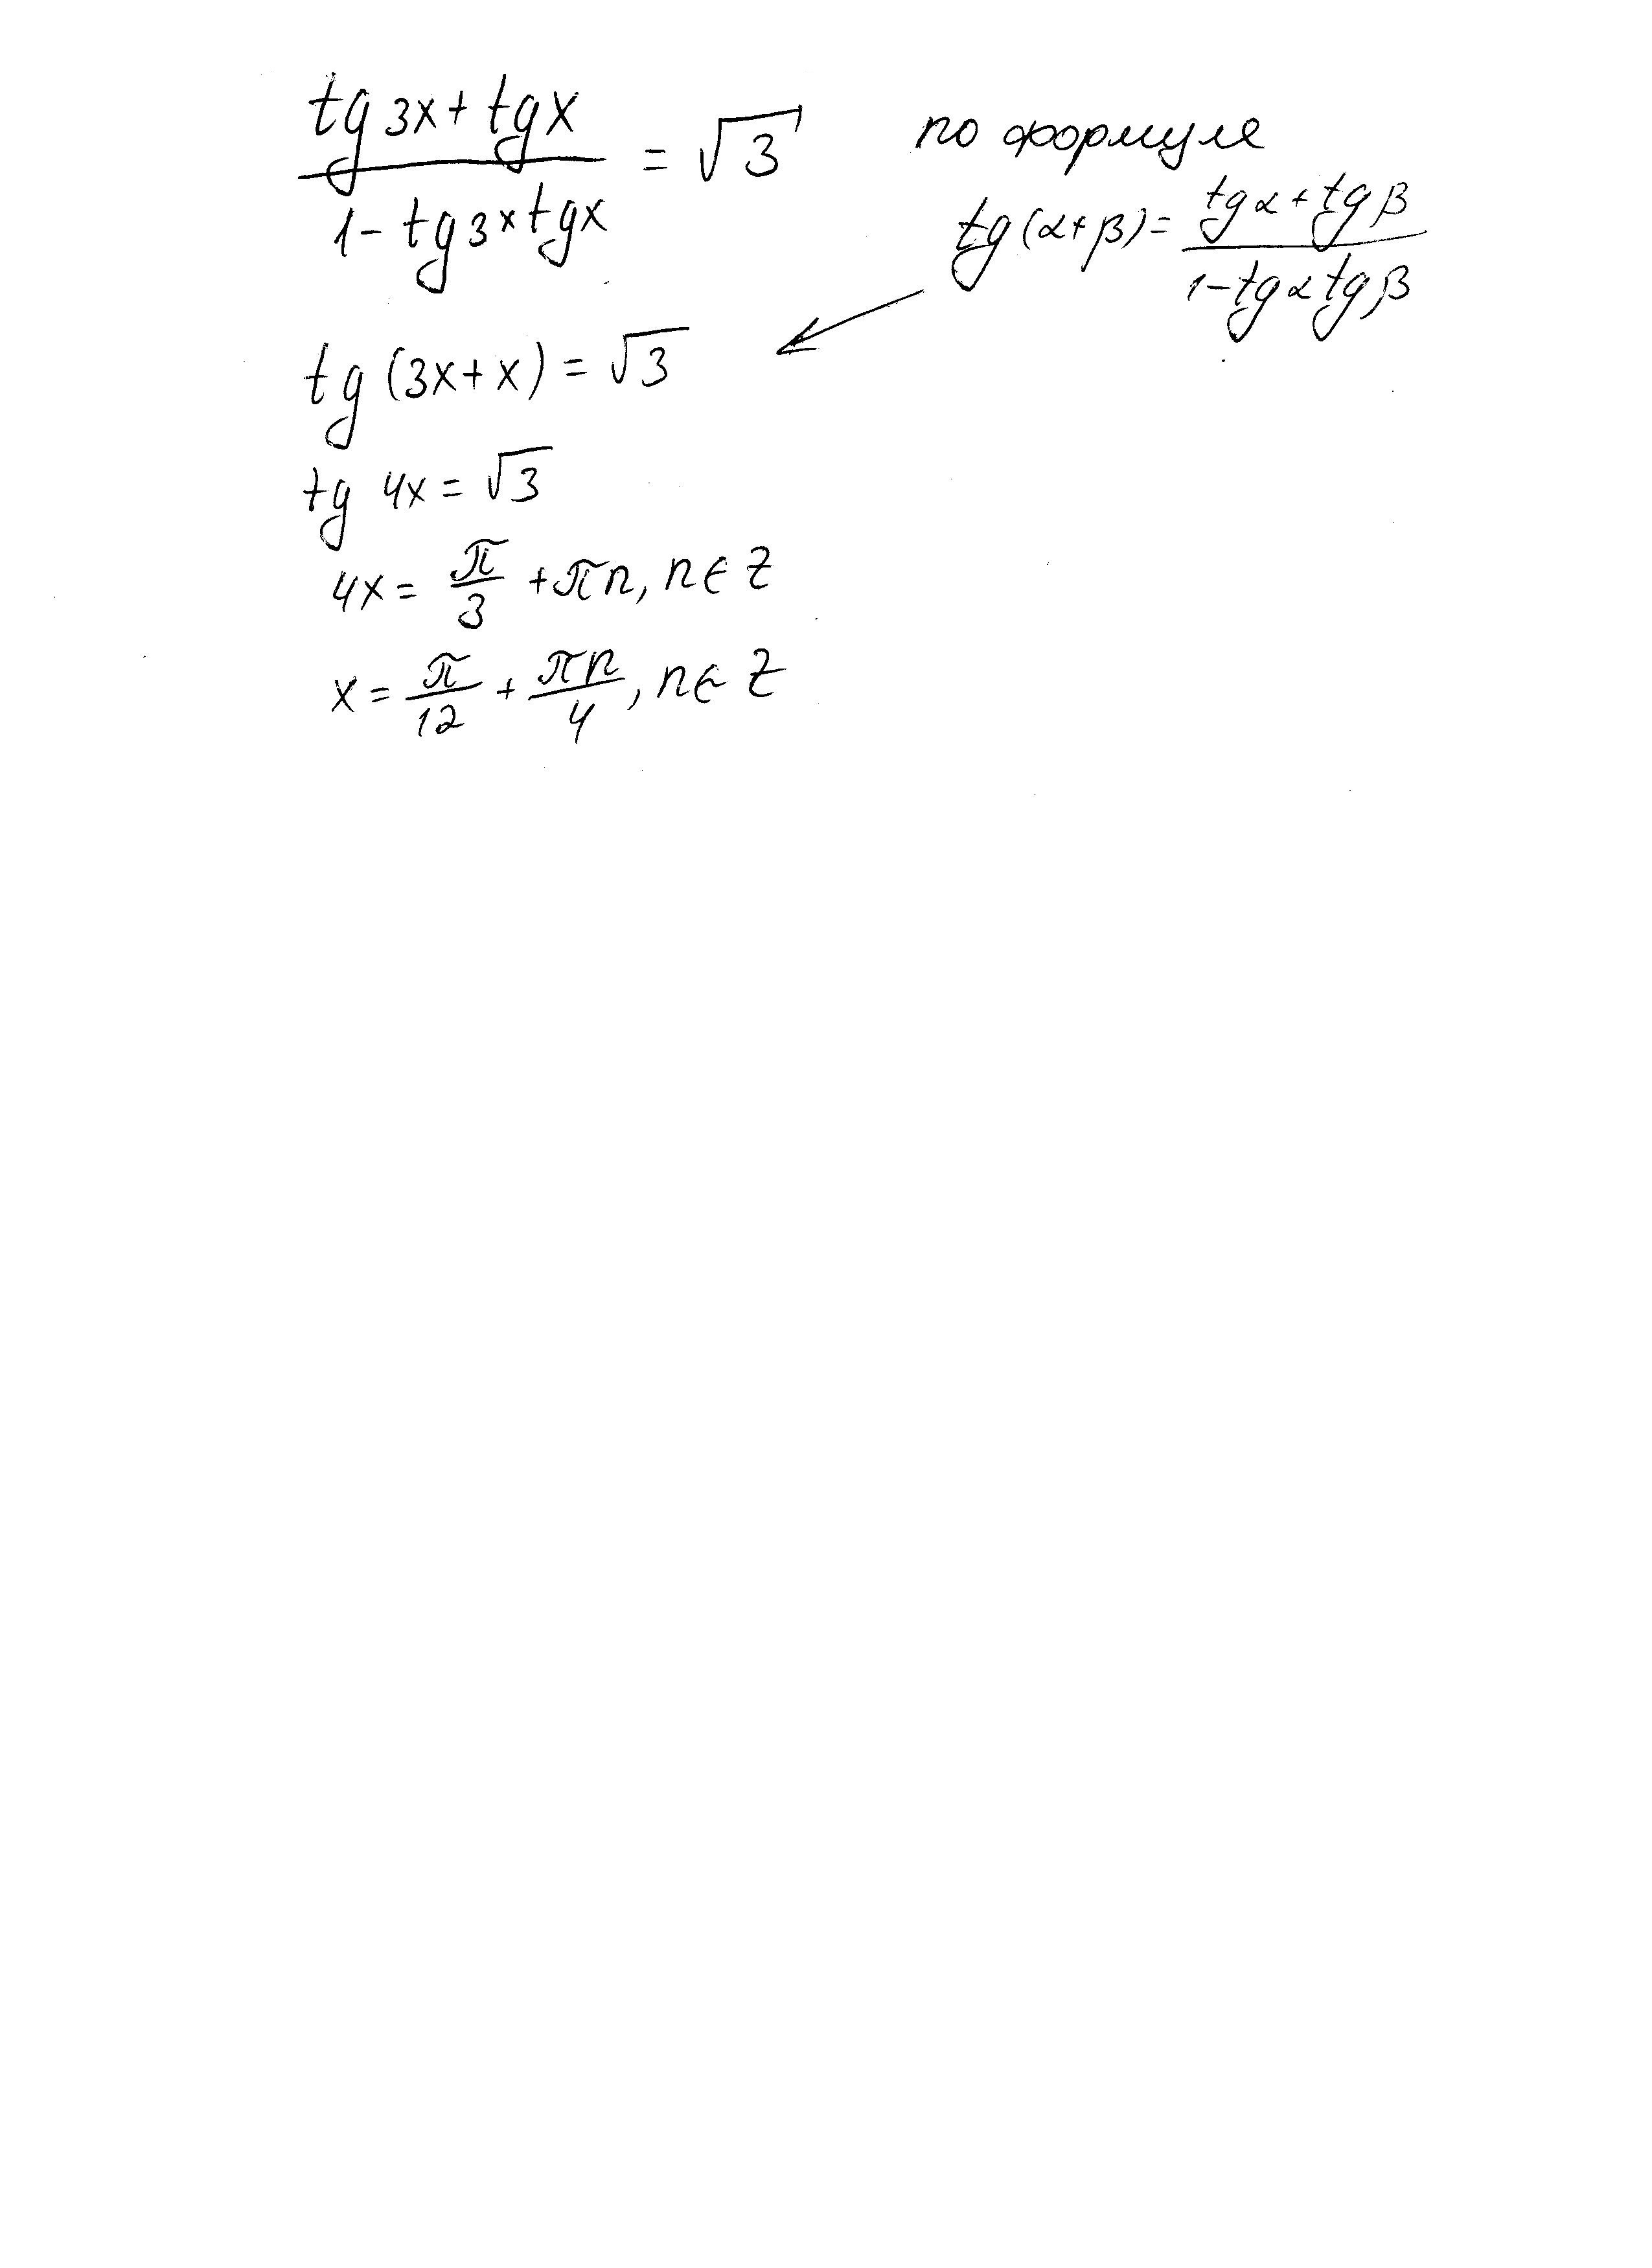 (tg 3x + tg x) / (1 - tg 3x tg x) = √3
по формуле
tg (α + β) = (tg α + tg β) / (1 - tg α tg β)
tg (3x + x) = √3
tg 4x = √3
4x = π/3 + πn, n ∈ Z
x = π/12 + πn/4, n ∈ Z